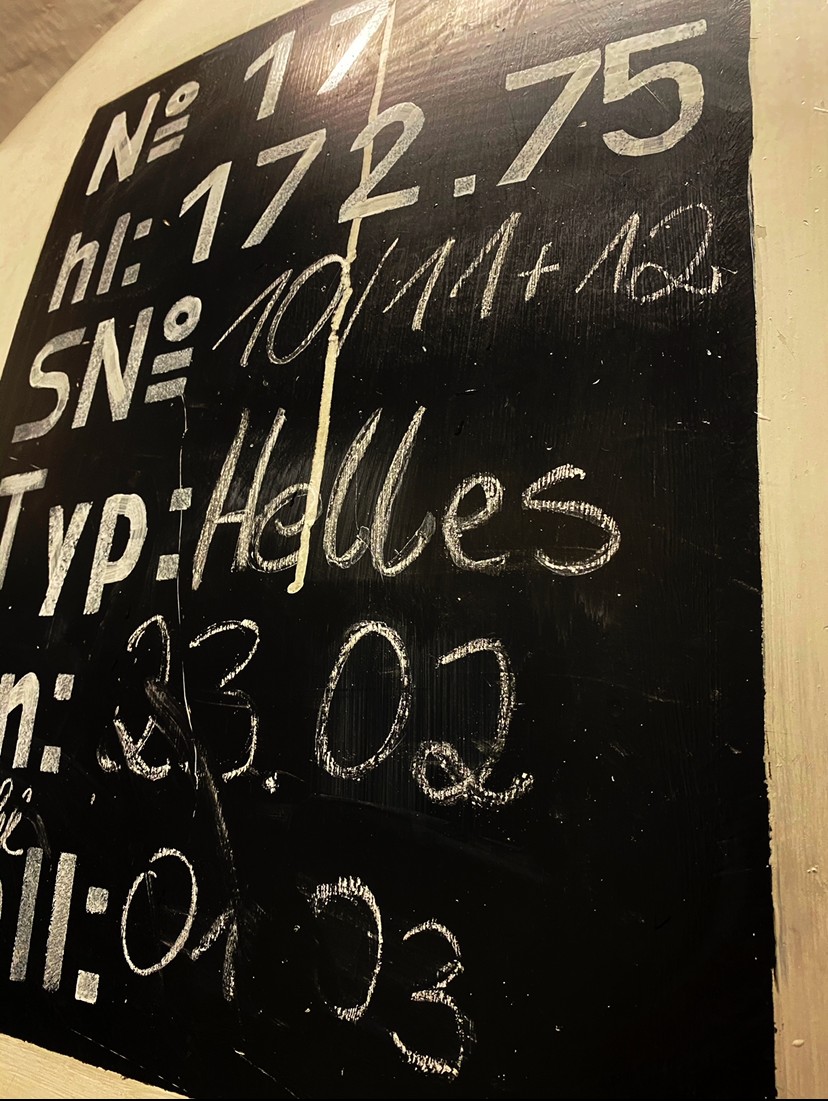 Nº 17
hl: 172.75
SNº 10/11+12
Typ: Helles
n: 23.02
ll: 01 03